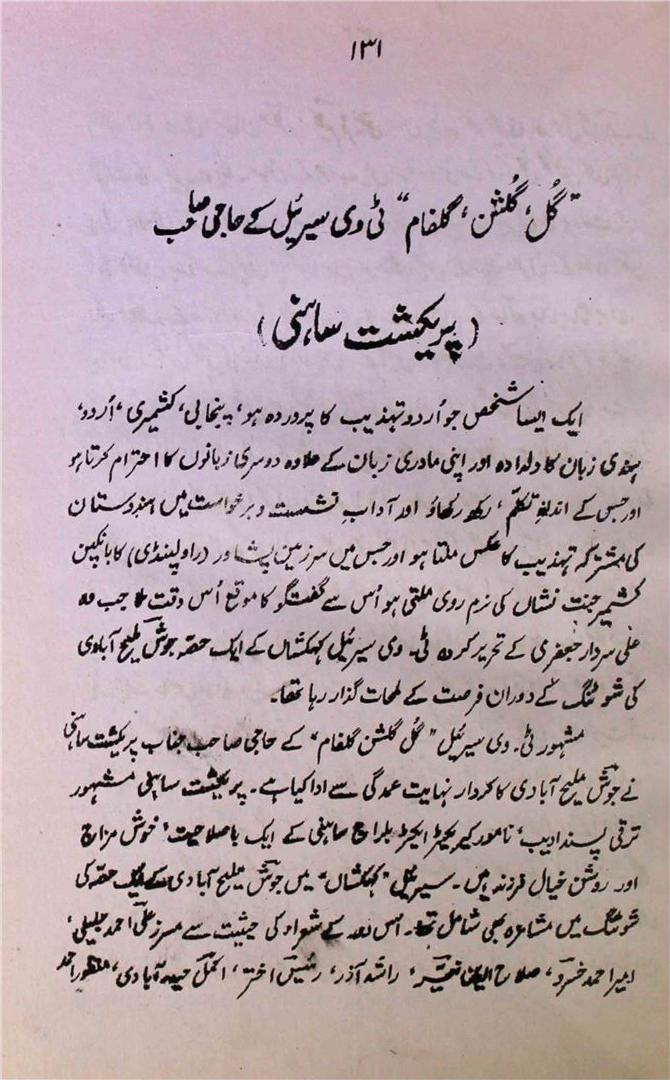 ۱۳۱
"گُل، گُلشن، گلفام" ٹی وی سیریئل کے حاجی صاحب
(پریکشت ساہنی)
ایک ایسا شخص جو اُردو تہذیب کا پروردہ ہو، پنجابی، کشمیری، اُردو،
ہندی زبان کا دلدادہ اور اپنی مادری زبان کے علاوہ دوسری زبانوں کا احترام کرتا ہو
اور جس کے اندازِ تکلّم، رکھ رکھاؤ اور آدابِ نشست و برخواست میں ہندوستان
کی مشترکہ تہذیب کا عکس ملتا ہو اور جس میں سرزمین پشاور (راولپنڈی) کا بانکپن
کشمیر جنت نشاں کی نرم روی ملتی ہو اُس سے گفتگو کا موقع اُس وقت ملا جب وہ
علی سردار جعفری کے تحریر کردہ ٹی۔ وی سیریئل کہکشاں کے ایک حصہ جوش ملیح آبادی
کی شوٹنگ کے دوران فرصت کے لمحات گذار رہا تھا۔
مشہور ٹی۔ وی سیریئل "گُل گلشن گلفام" کے حاجی صاحب جناب پریکشت ساہنی
نے جوش ملیح آبادی کا کردار نہایت عمدگی سے ادا کیا ہے۔ پریکشت ساہنی مشہور
ترقی پسند ادیب، نامور کیریکٹر ایکٹر بلراج ساہنی کے ایک باصلاحیت، خوش مزاج
اور روشن خیال فرزند ہیں۔ سیریئل "کہکشاں" میں جوش ملیح آبادی کے ایک حصہ کی
شوٹنگ میں مشاعرہ بھی شامل تھا۔ اس دور کے شعراء کی حیثیت سے مسرز علی احمد جلیلی،
امیر احمد خسرو، صلاح الدین نیّر، راشد آذر، رئیس اختر، اکمل حیدرآبادی، منظور احمد